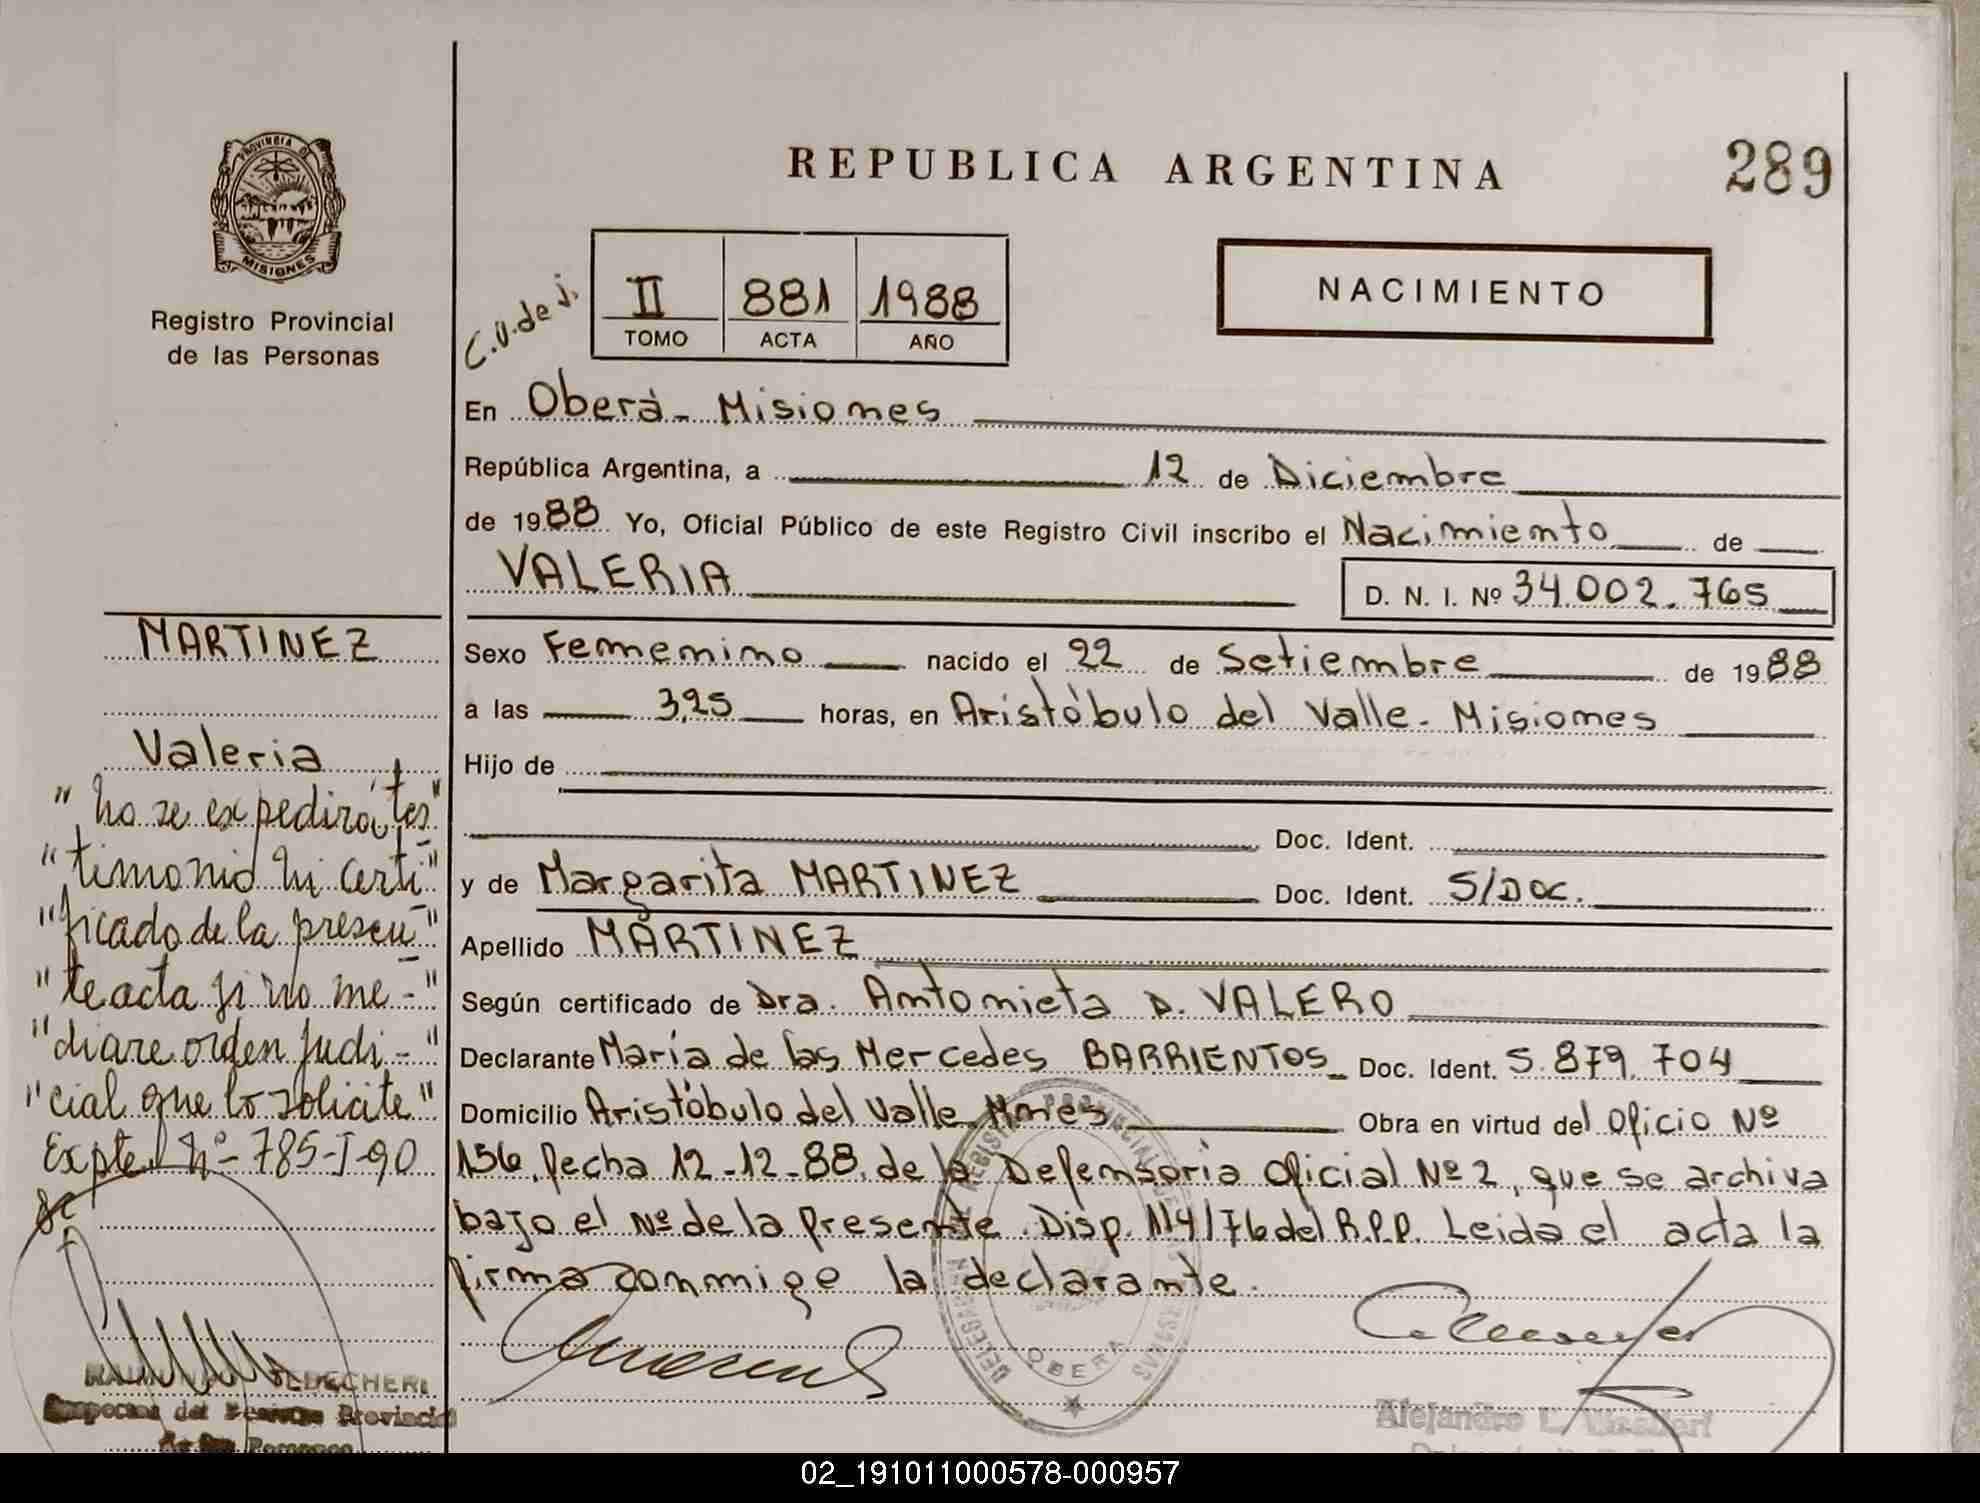 REPUBLICA ARGENTINA
289
PROVINCIA DE
MISIONES
Registro Provincial
de las Personas
C.V. de J.
II 881 1988
TOMO ACTA AÑO
NACIMIENTO
En Oberá - Misiones
República Argentina, a 12 de Diciembre
de 1988 Yo, Oficial Público de este Registro Civil inscribo el Nacimiento de
VALERIA
D. N. I. Nº 34.002.765
Sexo Femenino nacido el 22 de Setiembre de 1988
a las 3,25 horas, en Aristóbulo del Valle - Misiones
Hijo de
Doc. Ident.
y de Margarita MARTINEZ Doc. Ident. S/Doc.
Apellido MARTINEZ
Según certificado de Dra. Antonieta D. VALERO
Declarante María de las Mercedes BARRIENTOS Doc. Ident. 5.879.704
Domicilio Aristóbulo del Valle Mnes Obra en virtud del Oficio Nº
156, fecha 12-12-88, de la Defensoria Oficial Nº 2, que se archiva
bajo el Nº de la presente. Disp. 114/76 del R.P.P. Leida el acta la
firma conmigo la declarante.
MARTINEZ
Valeria
"No se expedirá tes"
"timonio ni certi"
"ficado de la presen"
"te acta si no me-"
"diare orden judi-"
"cial que lo solicite"
Expte. Nº 785-I-90
OBERA
Provincial
Personas
Alejandro L.
02_191011000578-000957